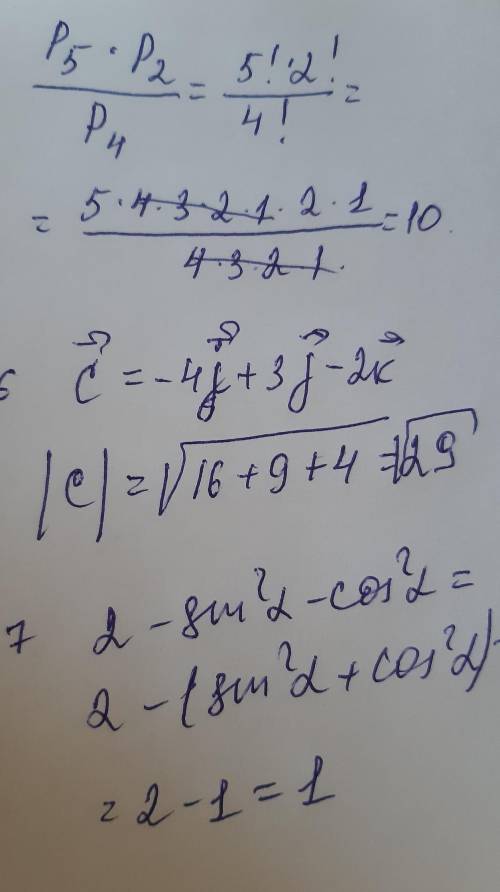 P₅ · P₂ / P₄ = 5! · 2! / 4! =
= 5·4·3·2·1·2·1 / 4·3·2·1 = 10.
6 c⃗ = -4j⃗ + 3j⃗ - 2k⃗
|c| = √16+9+4 = √29
7 2 - sin²α - cos²α =
2 - (sin²α + cos²α)
= 2 - 1 = 1